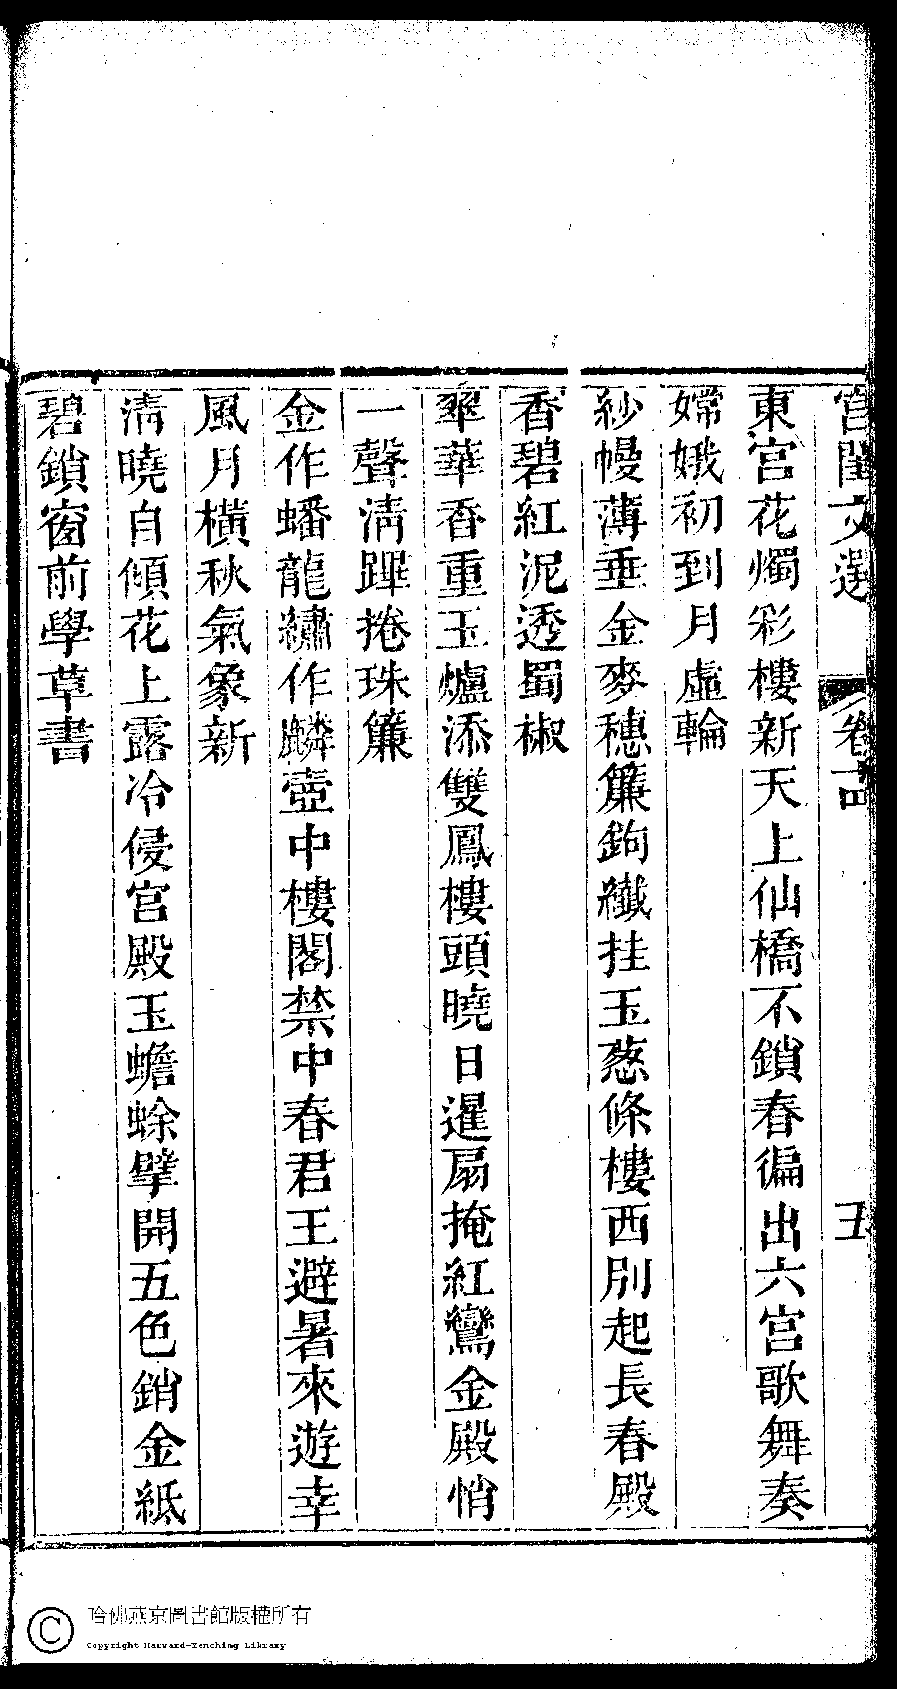 宮閨文選 卷十四 五
東宮花燭彩樓新天上仙橋不鎖春徧出六宮歌舞奏
嫦娥初到月虛輪
紗幔薄垂金麥穗簾鉤纖挂玉蔥條樓西別起長春殿
香碧紅泥透蜀椒
翠華香重玉爐添雙鳳樓頭曉日暹扇掩紅鸞金殿悄
一聲淸蹕捲珠簾
金作蟠龍繡作麟壺中樓閣禁中春君王避暑來遊幸
風月橫秋氣象新
淸曉自傾花上露冷侵宮殿玉蟾蜍擘開五色銷金紙
碧鎖窗前學草書
哈佛燕京圖書館版權所有
Copyright Harvard-Yenching Library